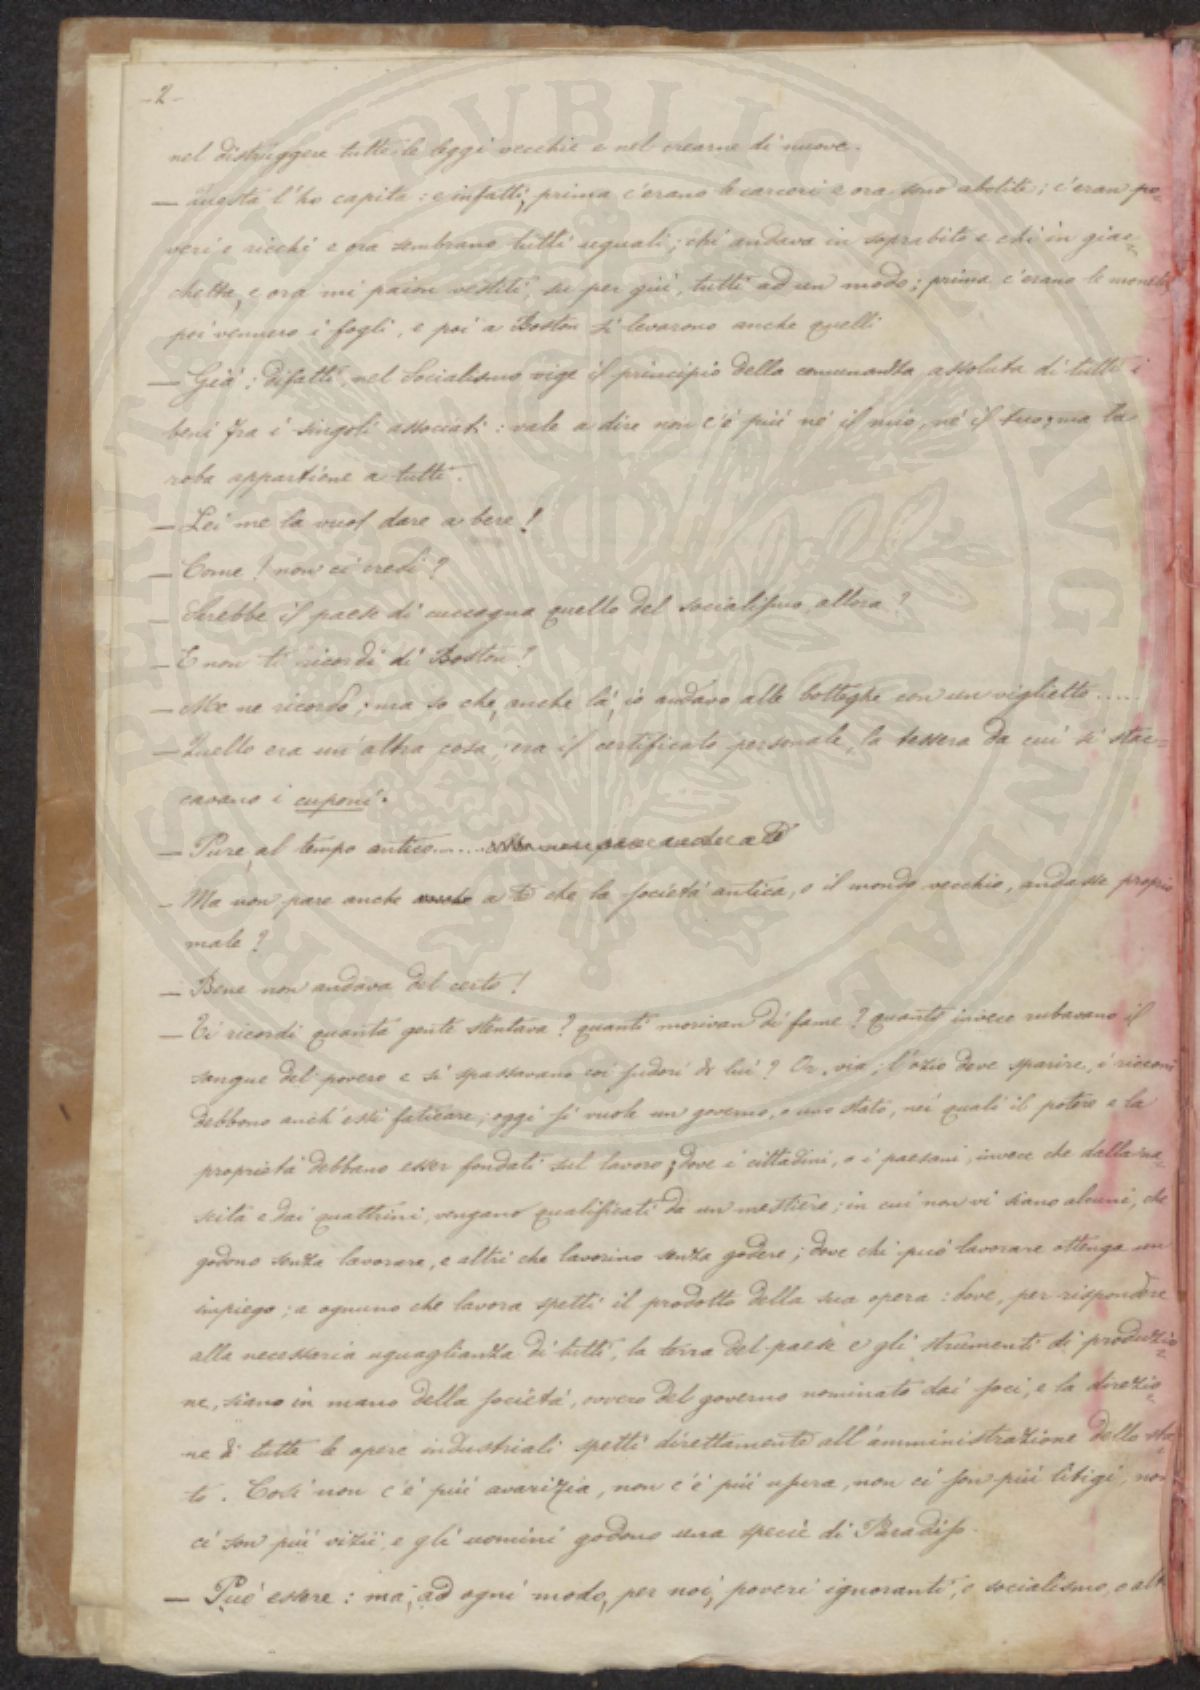 -2-
nel distruggere tutte le leggi vecchie e nel crearne di nuove.
— Questa l'ho capita: e infatti, prima c'erano le carceri e ora sono abolite; c'eran po-
veri e ricchi e ora sembrano tutti uguali; chi andava in soprabito e chi in giac-
chetta, e ora mi paion vestiti, su per giù, tutti ad un modo; prima c'erano le monete
poi vennero i fogli, e poi a Boston si levarono anche quelli
— Già; difatti, nel Socialismo vige il principio della comunanza assoluta di tutti i
beni fra i singoli associati: vale a dire non c'è più nè il mio, nè il tuo; ma la
roba appartiene a tutti.
— Lei me la vuol dare a bere!
— Come! non ci credi?
— Sarebbe il paese di cuccagna quello del socialismo, allora?
— E non ti ricordi di Boston?
— Me ne ricordo; ma so che, anche là, io andavo alle botteghe con un viglietto......
— Quello era un'altra cosa; era il certificato personale, la tessera da cui si stac=
cavano i cuponi.
— Pure, al tempo antico...... Ma non pare anche a te
— Ma non pare anche a te che la società antica, o il mondo vecchio, andasse proprio
male?
— Bene non andava del certo!
— Ti ricordi quanta gente stentava? quanti morivan di fame? quanti invece rubavano il
sangue del povero e si spassavano coi sudori di lui? Or via; l'ozio deve sparire, i ricconi
debbono anch'essi faticare; oggi si vuole un governo, o uno stato, nei quali il potere e la
proprietà debbano esser fondati sul lavoro; dove i cittadini, o i paesani, invece che dalla na-
scita e dai quattrini, vengano qualificati da un mestiere; in cui non vi siano alcuni, che
godono senza lavorare, e altri che lavorino senza godere; dove chi può lavorare ottenga un
impiego; a ognuno che lavora spetti il prodotto della sua opera: dove, per rispondere
alla necessaria uguaglianza di tutti, la terra del paese e gli strumenti di produzio=
ne, siano in mano della società, ovvero del governo nominato dai soci, e la direzio=
ne di tutte le opere industriali spetti direttamente all'amministrazione dello sta=
to. Così non c'è più avarizia, non c'è più usura, non ci son più litigi, non
ci son più vizii, e gli uomini godono una specie di Paradiso.
— Può essere: ma, ad ogni modo, per noi, poveri ignoranti, o socialismo, o alt